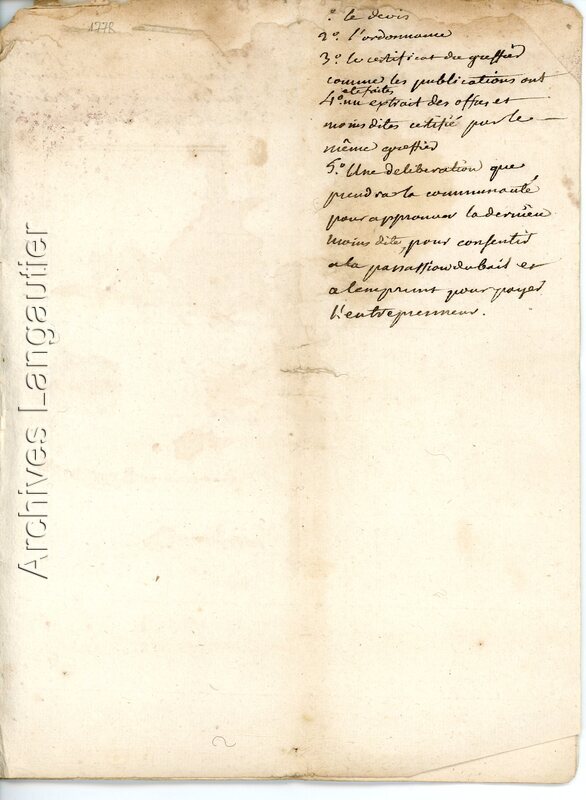 1778
1º. le devis
2º. l'ordonnance
3º. le certificat du greffier
comme les publications ont
eté faites
4º. un extrait des offres et
moins dites certifié par le
même greffier
5º. Une deliberation que
prendra la communauté
pour approuver la derniere
moins dite, pour consentir
a la passation du bail et
a lemprunt pour payer
l'entrepreneur.
Archives Langautier